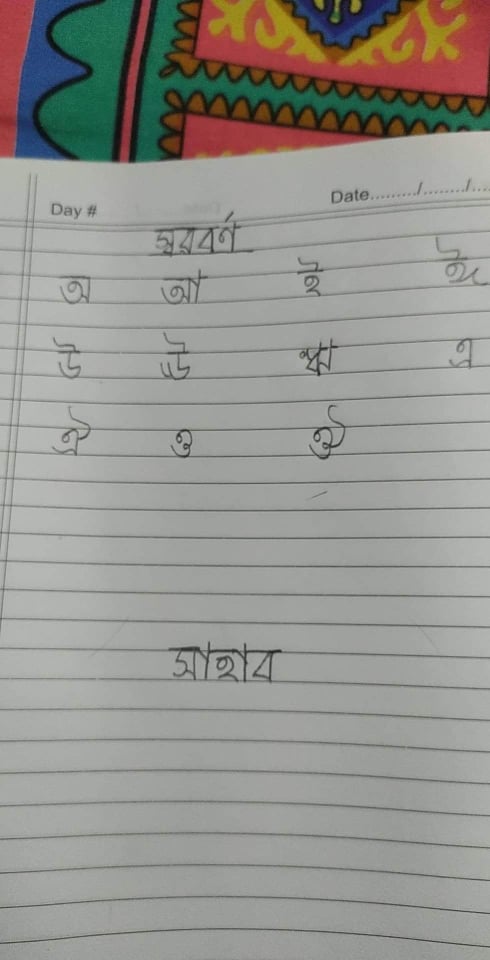 Day #
Date........./......../...
স্বরবর্ণ
অ আ ই ঈ
উ ঊ ঋ এ
ঐ ও ঔ
সাহাব